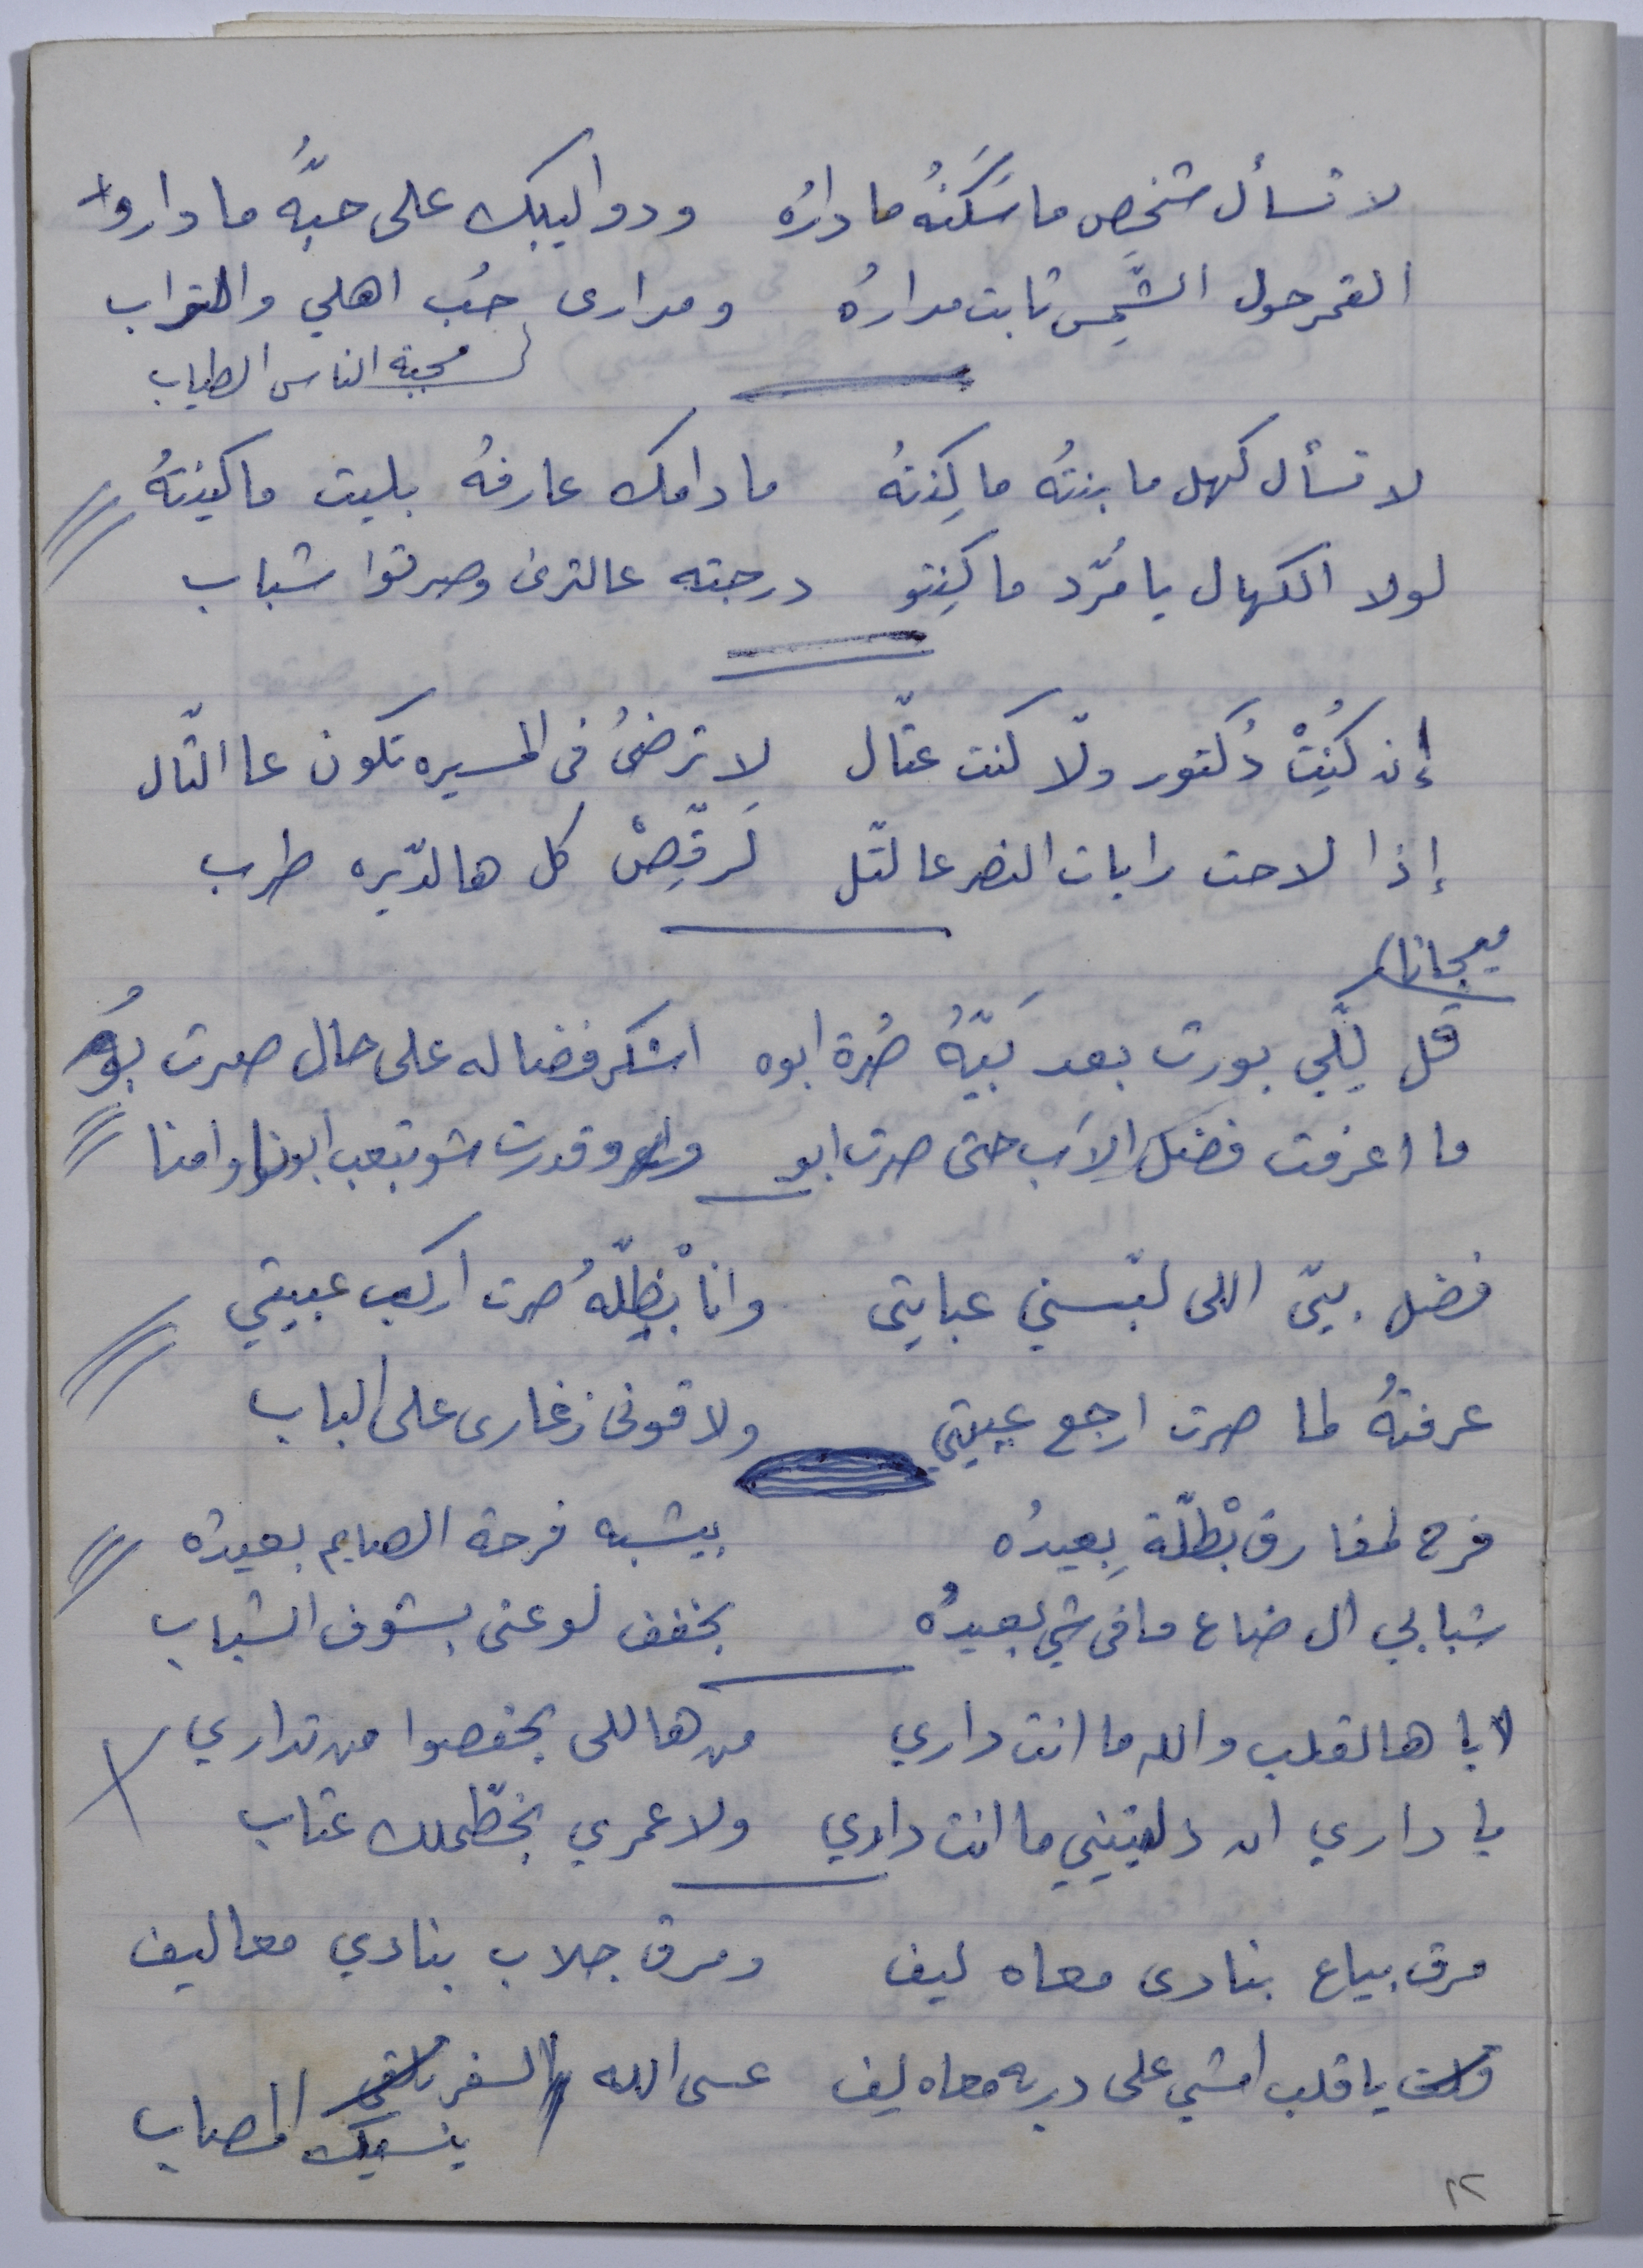 لا تسأل شخصٍ ما سَكَنهُ ما دارُه ودواليبك على حبَّهُ ما داروا
القمر حول الشَّمِس ثابت مدارهُ ومدارى حُب اهلي والتراب
محبة الناس الطياب
لا تسأل كهل ما بنتهُ ما كِنتهُ ما دامك عارفهُ بليت ما كينتهُ
لولا الكهال يا مُرّد ما كِنتو درجته عالترى وصرتوا شباب
إن كُنِتْ دُكتور ولّا كنت عتّال لا ترضىُ فى المسيره تكون عا التّال
إذا لاحت رايات النصر عا لتّل لَرقِّصْ كل هالدّيره طرب
ميجانا
قل لِلّي بورت بعد بَيّهُ ضُرة ابوه اشكر فضاله على حال صرت بوُ
ما اعرفت فضل الاَب حتى صرت ابو وقدرت شو بتعب ابونا وامنا
فضل بيّى اللى لبّسني عبايتى وانا بْظِلّهُ صرت اركب عبيتي
عرفتهُ لما صرت ارجع عبيتي ولاقونى زغارى على الباب
فرح لمفارق بْطلّة بِعيدُه بيشبه فرحة الصايم بعيدُه
شبابي ال ضاع ما فى شي بعيدُه بخفف لوعتى بشوف الشباب
لايا هالقلب والله ما انت داري من هاللى بخفصوا من تداري
يا داري ان دلتيني ما انت داري ولا عمري بخطّلك عتاب
مرق بياع بنادى معاه ليف ومرق جلاب بنادي معاليف
قلت يا قلب امشي على دربه معاه ليف عسى الله السفر تلاقى
ينسيك المصاب
٢٢